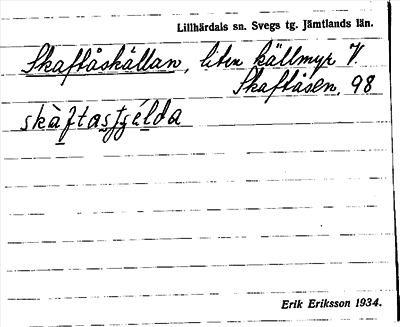 Lillhärdals sn. Svegs tg. Jämtlands län.
Skaftåskällan, liten källmyr V.
Skaftåsen. 98
Erik Eriksson 1934.